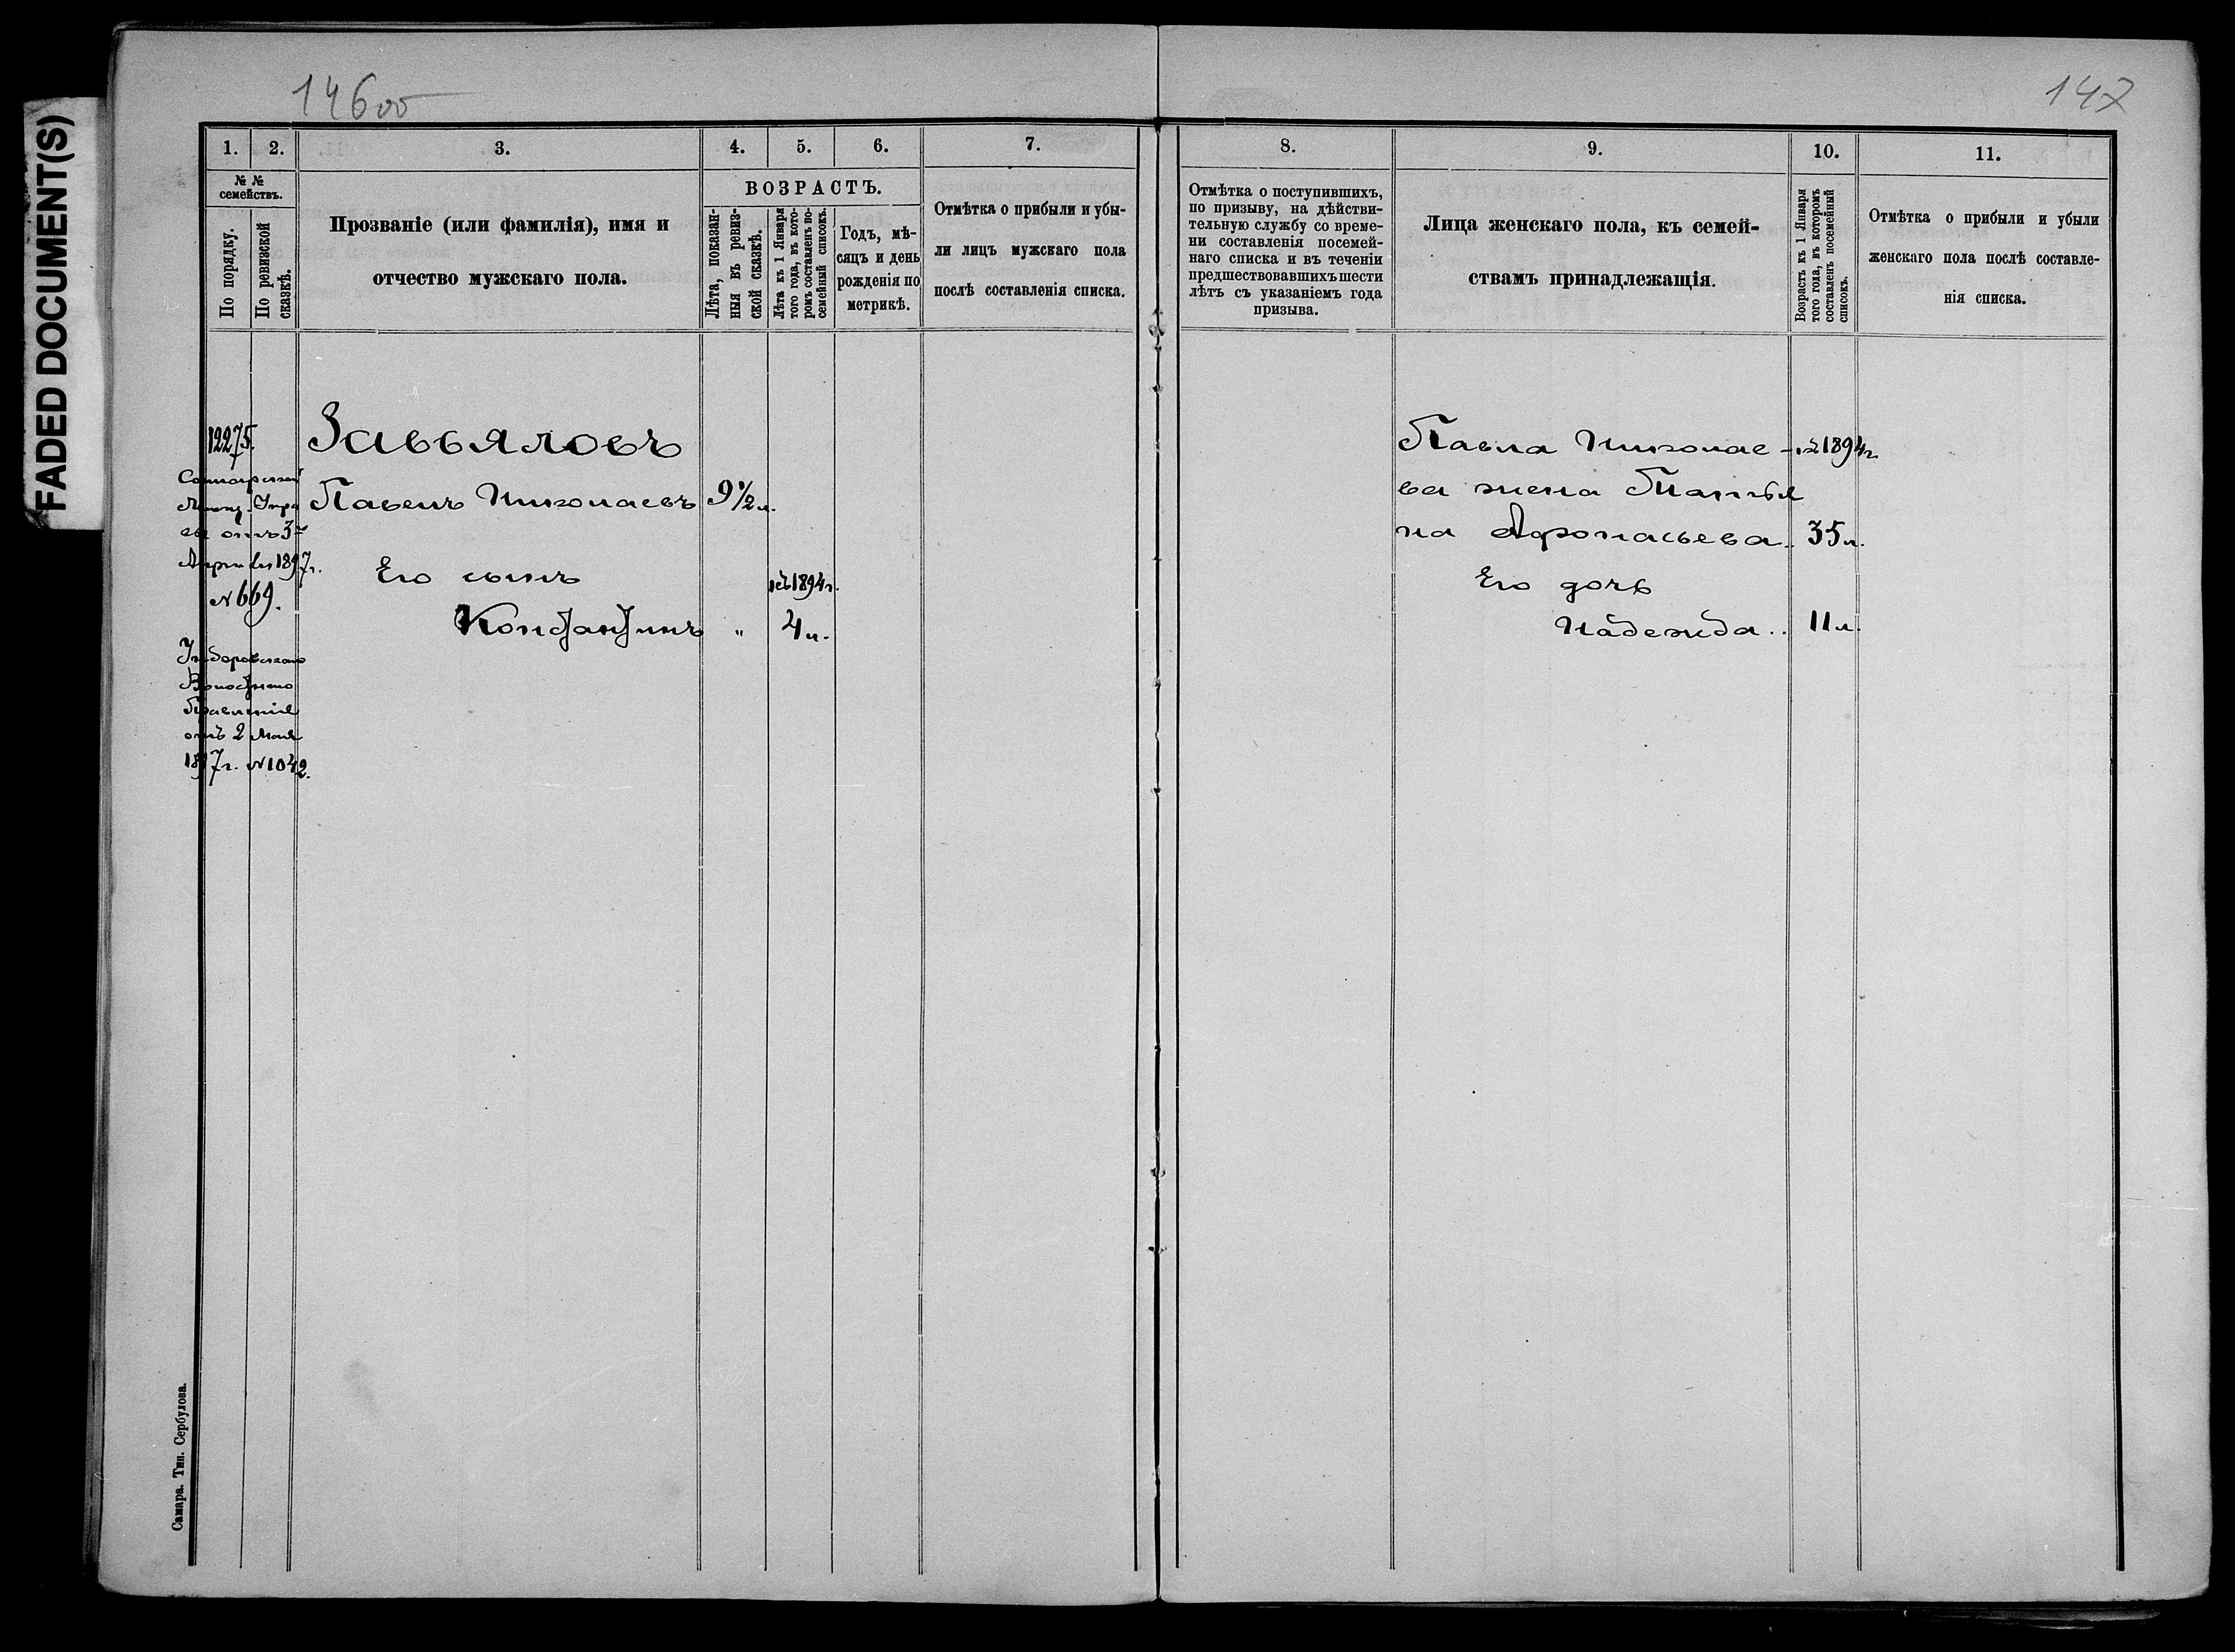 FADED DOCUMENT(S)
146об
147
1.
2.
3.
4.
5.
6.
7.
8.
9.
10.
11.
№ №
семействъ.
По порядку.
По ревизской
сказкѣ.
Прозваніе (или фамилія), имя и
отчество мужскаго пола.
ВОЗРАСТЪ.
Лѣта, показан-
ныя въ ревиз-
ской сказкѣ.
Лѣта къ 1 Января
того года, въ кото-
ромъ составленъ по-
семейный списокъ.
Годъ, мѣ-
сяцъ и день
рожденія по
метрикѣ.
Отмѣтка о прибыли и убы-
ли лицъ мужскаго пола
послѣ составленія списка.
Отмѣтка о поступившихъ,
по призыву, на дѣйстви-
тельную службу со време-
ни составленія посемей-
наго списка и въ теченіи
предшествовавшихъ шести
лѣтъ съ указаніемъ года
призыва.
Лица женскаго пола, къ семей-
ствамъ принадлежащія.
Возрастъ къ 1 Января
того года, въ которомъ
составленъ посемейный
списокъ.
Отмѣтка о прибыли и убыли
женскаго пола послѣ составле-
нія списка.
12275.
Самарской
Упра
вы отъ 3го
Апрѣля 1897г.
№ 669.
Волостного
Правленія
отъ 2 Мая
1897г. №1042.
Завьяловъ
Павелъ Николаевъ 9½ л.
Его сынъ
къ 1894г.
Константинъ " 4 л.
Павла Николае- къ 1894г.
ва жена Татья
на Афонасьева.. 35 л.
Его дочь
Надежда.. 11 л.
Самара. Тип. Сербулова.